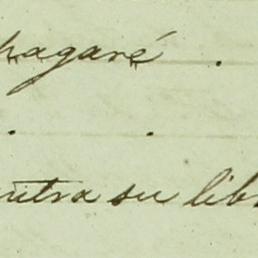 pagaré .
. .
contra su lib